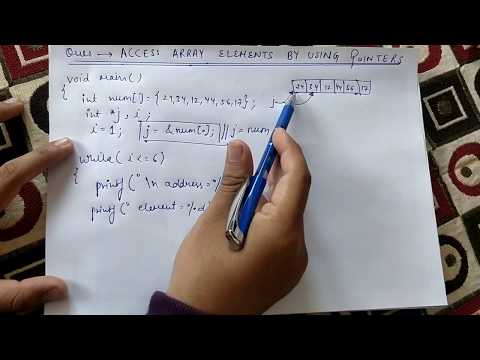 Ques → ACCESS ARRAY ELEMENTS BY USING POINTERS
void main()
{ int num[] = { 24,34,12,44,56,17};
int *j, i;
i = 1; j = &num[0]; // j = num
while( i <= 6)
{ printf(" \n address = %
printf(" element = %d
j→ 24 34 12 44 56 17